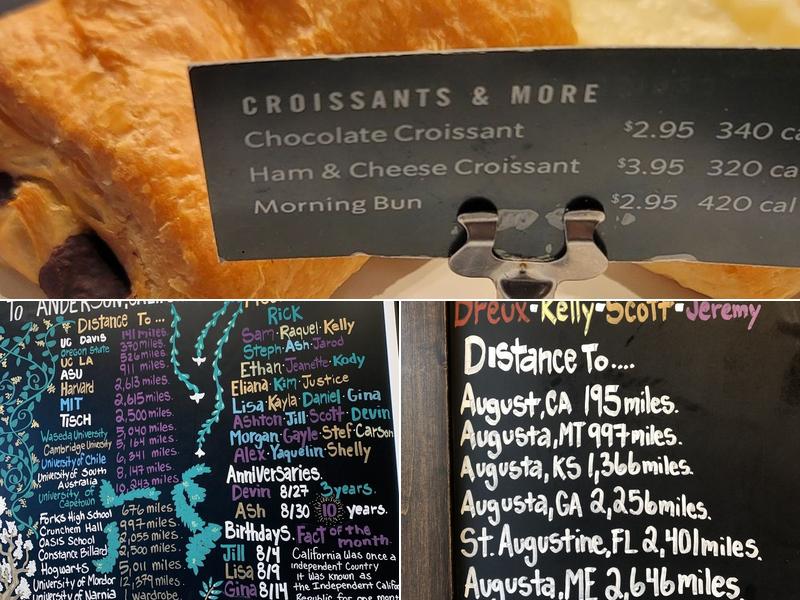 CROISSANTS & MORE
Chocolate Croissant $2.95 340 ca
Ham & Cheese Croissant $3.95 320 ca
Morning Bun $2.95 420 cal
To ANDERSON, CALIF
Distance To ...
UC DAVIS 141 miles.
Oregon State 370 miles.
UC LA 526 miles.
ASU 911 miles.
Harvard 2,613 miles.
MIT 2,615 miles.
TISCH 2,500 miles.
Waseda University 5,040 miles.
Cambridge University 5,164 miles.
University of Chile 6,341 miles.
University of South Australia 8,147 miles.
University of Capetown 10,243 miles.
Forks High School 676 miles.
Crunchem Hall 997 miles.
OASIS School 2,055 miles.
Constance Billard 2,500 miles.
Hogwarts 5,011 miles.
University of Mordor 12,379 miles.
University of Narnia 1 wardrobe.
Rick
Sam·Raquel·Kelly
Steph·Ash·Jarod
Ethan·Jeanette·Kody
Eliana·Kim·Justice
Lisa·Kayla·Daniel·Gina
Ashton·Jill·Scott·Devin
Morgan·Gayle·Stef·Carson
Alex·Yaquelin·Shelly
Anniversaries.
Devin 8/27 3 years.
Ash 8/30 10 years.
Birthdays.
Jill 8/4
Lisa 8/9
Gina 8/14
Fact of the
month.
California Was once a
independent Country
it was known as
the Independent Califor
Republic for one mont
Dreux·Kelly·Scott·Jeremy
Distance To....
August, CA 195 miles.
Augusta, MT 997 miles.
Augusta, KS 1,366 miles.
Augusta, GA 2,256 miles.
St. Augustine, FL 2,401 miles.
Augusta, ME 2,646 miles.